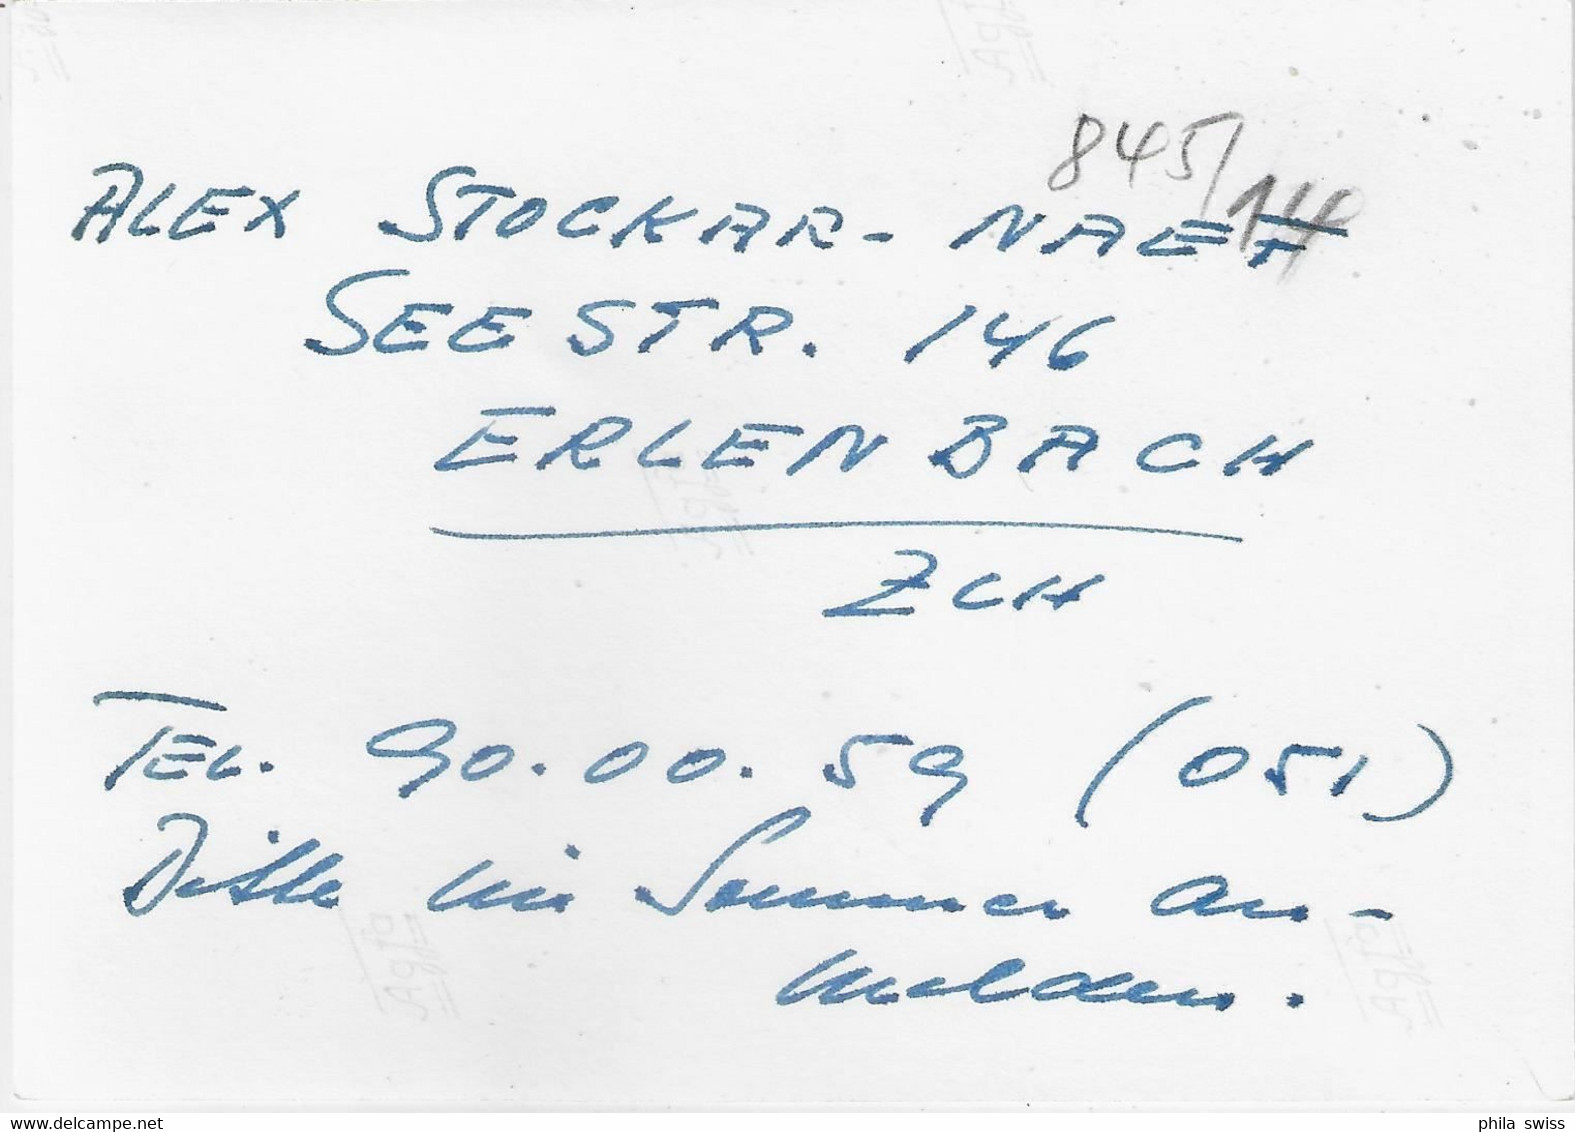 845/14
ALEX STOCKAR-NAEF
SEESTR. 146
ERLENBACH
ZCH
TEL. 90.00.59 (051)
Bitte im Sommer an-
melden.
Agfa
Agfa
Agfa
Agfa
phila swiss